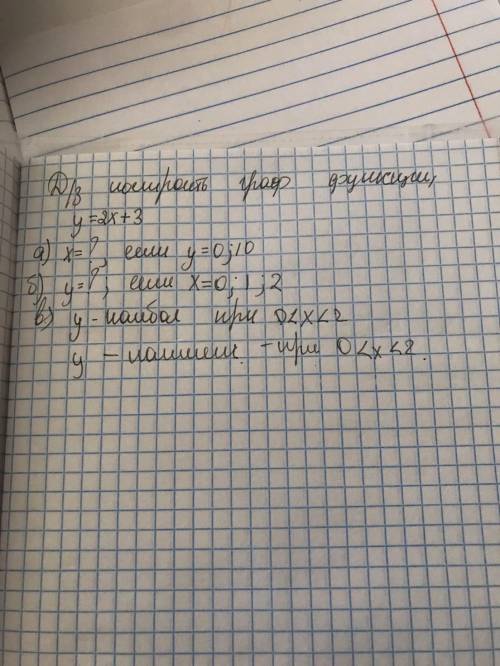 Д/з построить граф функции,
y=2x+3
а) x=?, если y=0; 10
б) y=?, если x=0; 1; 2
в) y - наибол при 0<x<2
y - наимен. - при 0<x<2.